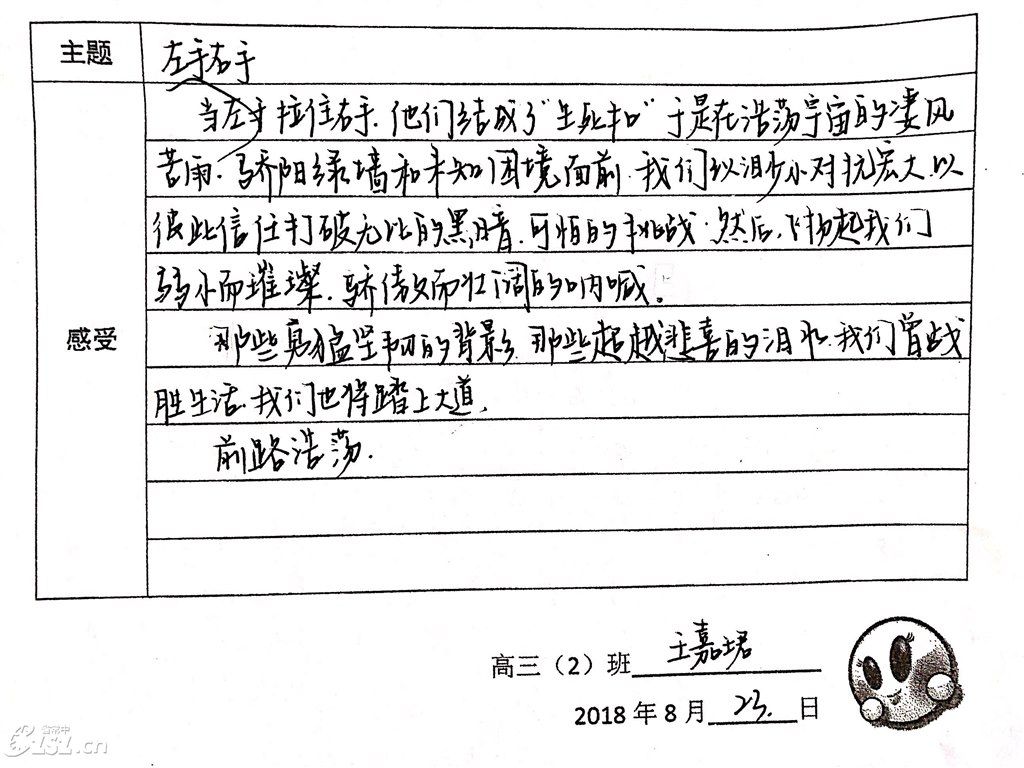 主题 左手右手
当左手拉住右手,他们结成了“生死扣”于是在浩荡宇宙的凄风
苦雨、骄阳绿墙和未知困境面前,我们以渺小对抗宏大,以
彼此信任打破无比的黑暗,可怕的挑战.然后,飞扬起我们
弱小而璀璨,骄傲而壮阔的呐喊。
感受
那些勇猛坚韧的背影,那些超越悲喜的泪水,我们曾战
胜生活,我们也得踏上大道,
前路浩荡.
高三（2）班 王嘉珺
2018年8月23.日
.cn